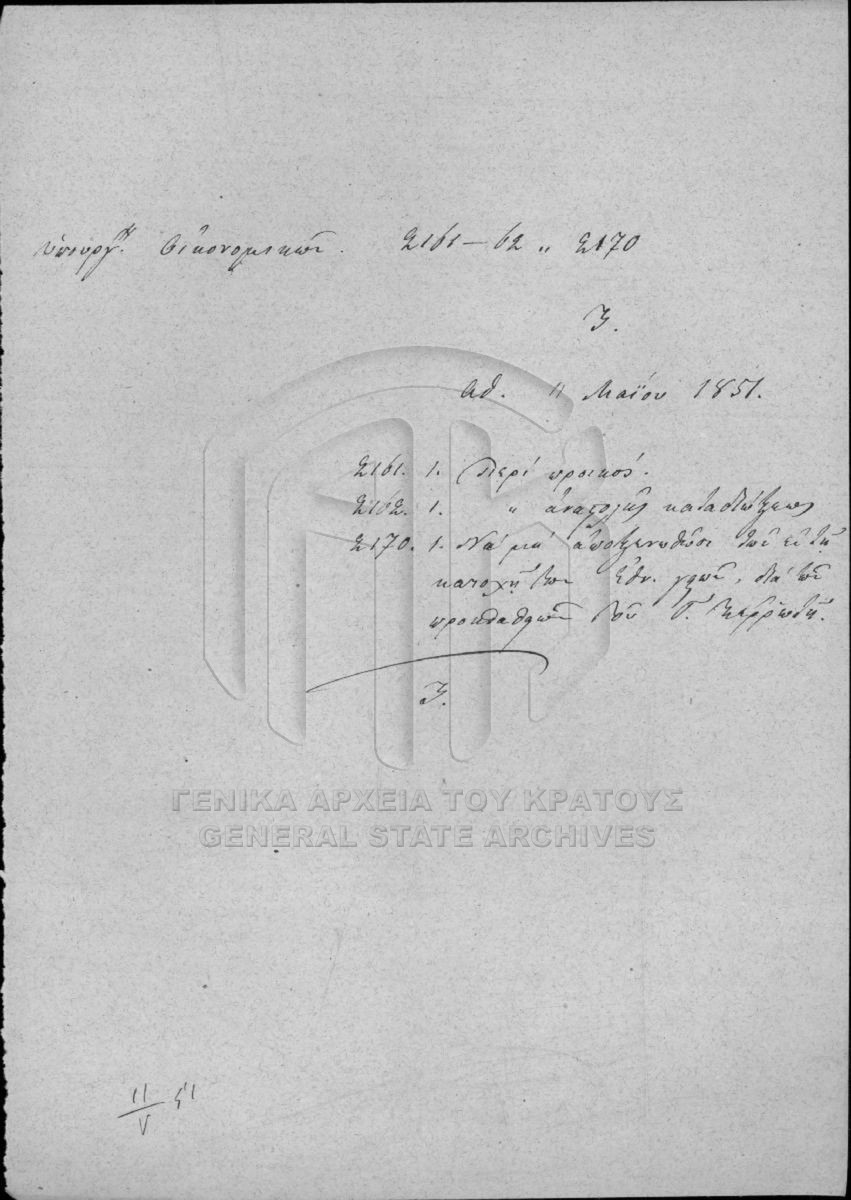 Ὑπουργ. Οἰκονομικῶν. 2161–62 „ 2170
Ἀθ. 11 Μαΐου 1851.
2161. 1. Περὶ προικός.
2162. 1. „ ἀναστολῆς καταδιώξεως
2170. 1. Νὰ μὴ ἀποξενωθῶσι τῶν ἐν τῇ
κατοχῇ των ἐθν. γαιῶν, διὰ τῶν
τοῦ Γ.
ΓΕΝΙΚΑ ΑΡΧΕΙΑ ΤΟΥ ΚΡΑΤΟΥΣ
GENERAL STATE ARCHIVES
11/V 51